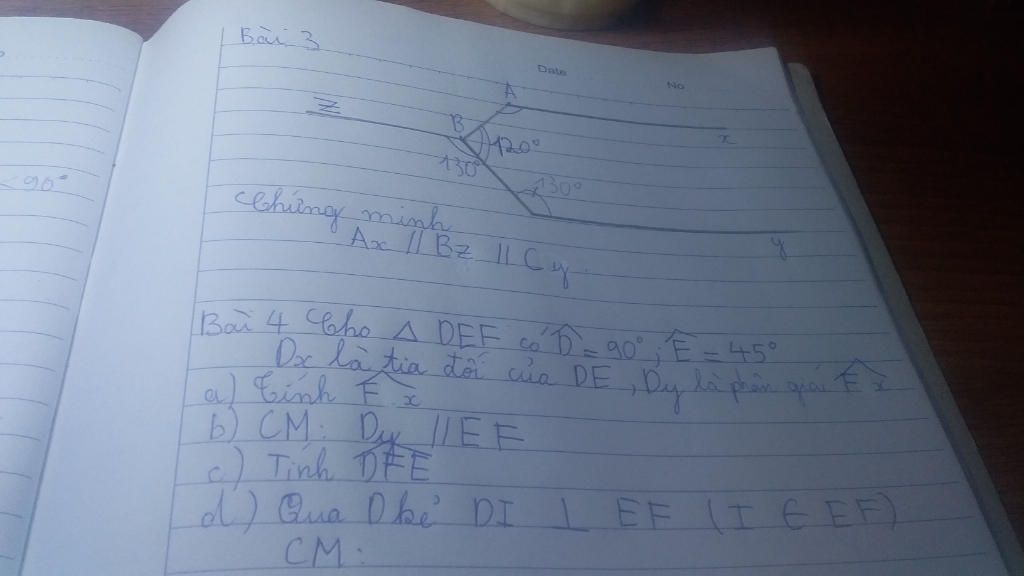 < 90°
Bài 3
Date
No
A
Z
B
120°
x
130°
130°
y
Chứng minh
Ax // Bz // Cy.
Bài 4 Cho △ DEF có D̂ = 90°; Ê = 45°
Dx là tia đối của DE, Dy là phân giác F̂x
a) Tính F̂x
b) CM: Dy // EF
c) Tính DFE
d) Qua D kẻ DI ⊥ EF (I ∈ EF)
CM: